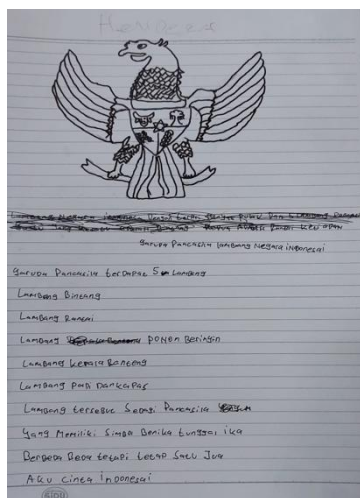 Garuda Pancasila lambang Negara indonesai
Garuda Pancasila terdapat 5 Lambang
Lambang Bintang
Lambang Rantai
Lambang PoHon Beringin
Lambang kepala Banteng
Lambang padi Dan kapas
Lambang tersebut Sebagi Pancasila
Yang Memiliki Simbo Benika tunggal ika
Berbeda Beda tetapi tetap Satu Jua
Aku Cinta inDonesai